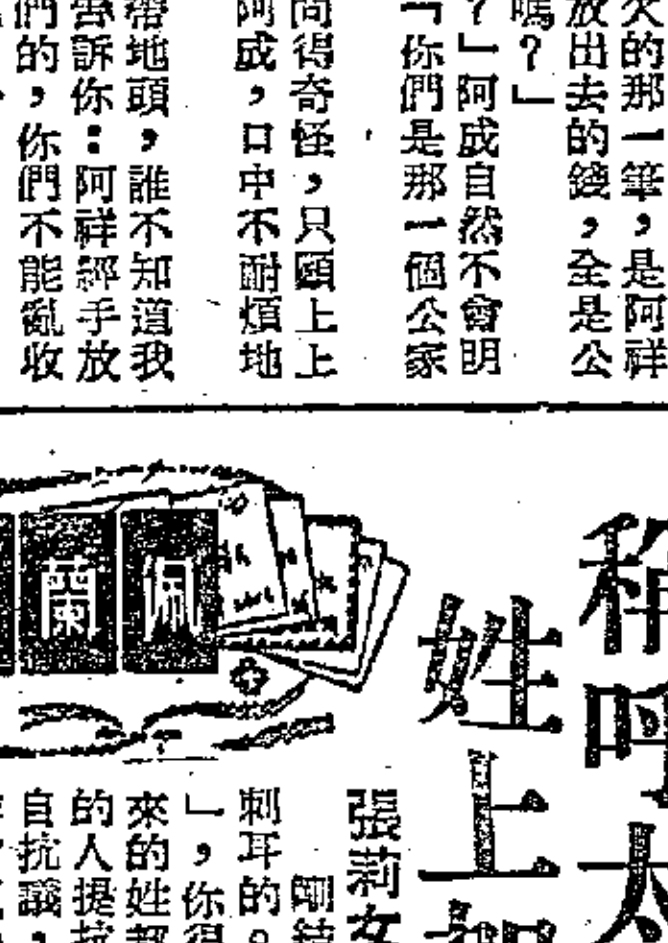 欠的那一筆，是阿祥
放出去的錢，全是公
嗎？」
？」阿成自然不會明
「你們是那一個公家
問得奇怪，只顧上上
阿成，口中不耐煩地
帶地頭，誰不知道我
告訴你：阿祥經手放
們的，你們不能亂收
稱呼太
姓上
佩蘭
張莉女
剛
刺耳的。
」，你得
來的姓
的人提抗
自抗議，